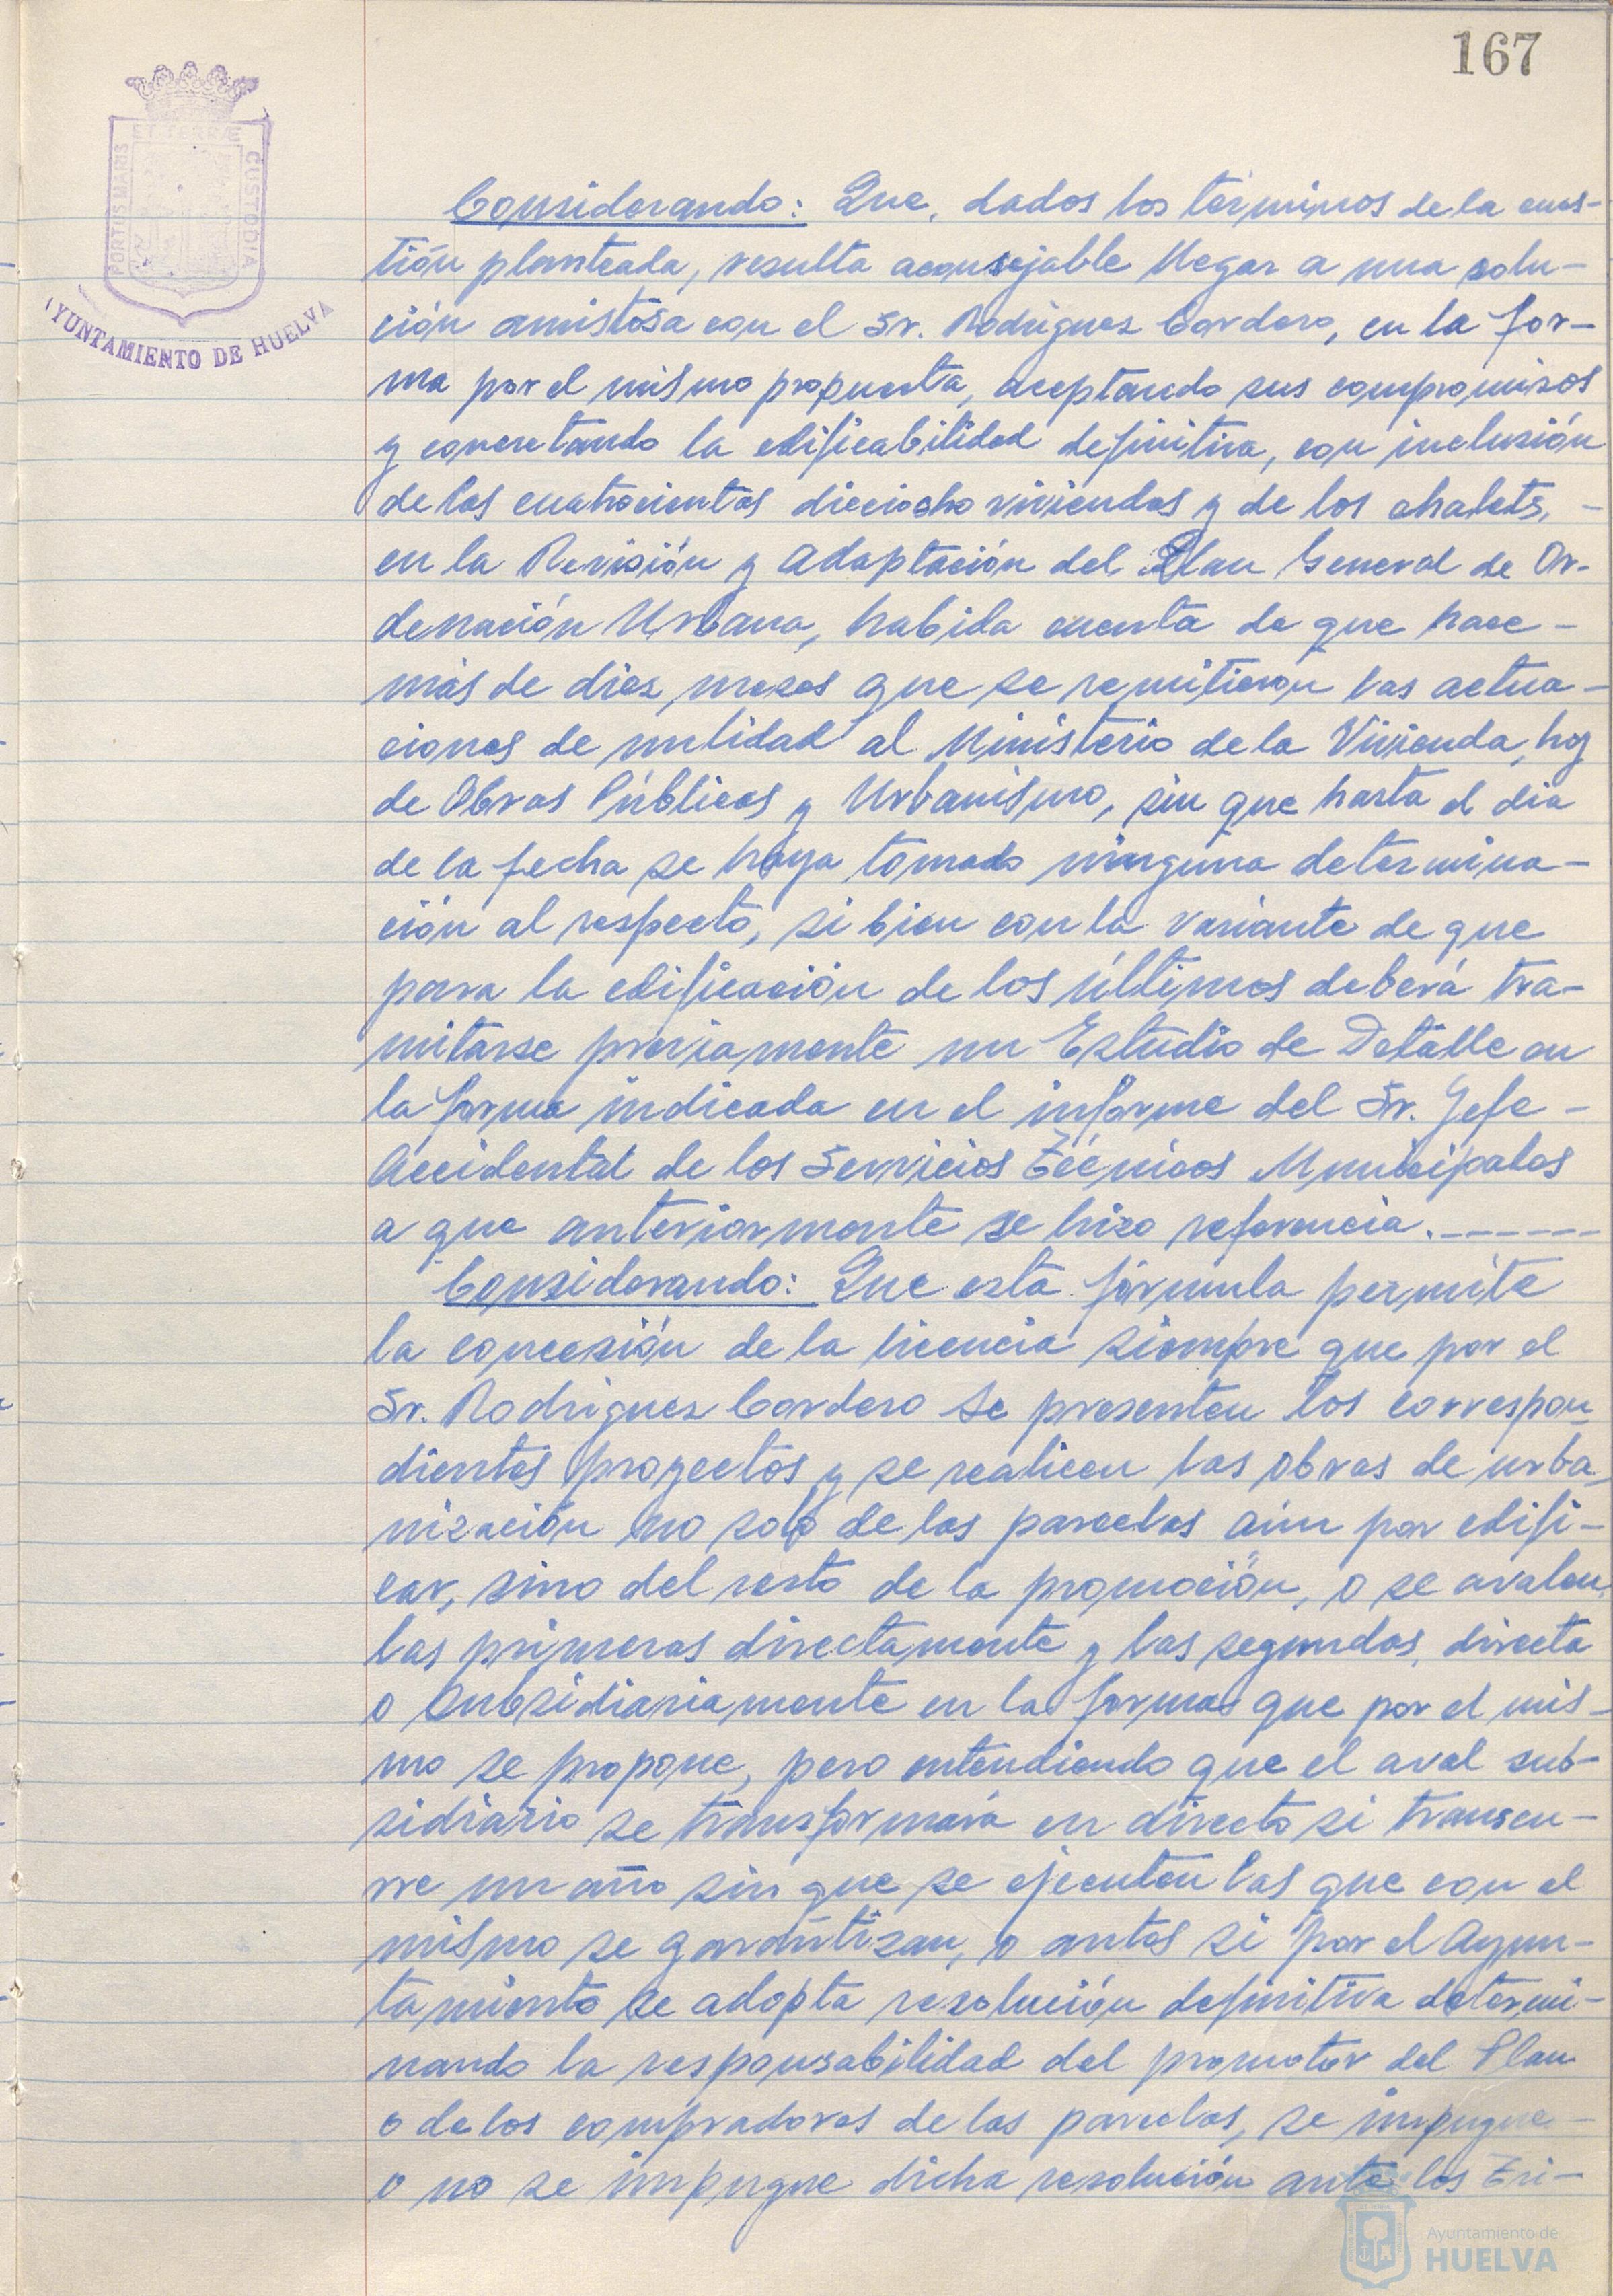 167
ET TERRÆ
PORTUS MARIS
CUSTODIA
AYUNTAMIENTO DE HUELVA
Considerando: Que, dados los términos de la cues-
tión planteada, resulta aconsejable llegar a una solu-
ción amistosa con el Sr. Rodríguez Cordero, en la for-
ma por el mismo propuesta, aceptando sus compromisos
y concretando la edificabilidad definitiva, con inclusión
de las cuatrocientas dieciocho viviendas y de los chalets, -
en la Revisión y Adaptación del Plan General de Or-
denación Urbana, habida cuenta de que hace -
más de diez meses que se remitieron las actua-
ciones de nulidad al Ministerio de la Vivienda, hoy
de Obras Públicas y Urbanismo, sin que hasta el día
de la fecha se haya tomado ninguna determina-
ción al respecto, si bien con la variante de que
para la edificación de los últimos deberá tra-
mitarse previamente un Estudio de Detalle en
la forma indicada en el informe del Sr. Jefe -
Accidental de los Servicios Técnicos Municipales
a que anteriormente se hizo referencia.------
Considerando: Que esta fórmula permite
la concesión de la licencia siempre que por el
Sr. Rodríguez Cordero se presenten los correspon
dientes proyectos y se realicen las obras de urba
nización no solo de las parcelas aún por edifi-
car, sino del resto de la promoción, o se avalen
las primeras directamente y las segundas, directa
o subsidiariamente en las formas que por el mis-
mo se propone, pero entendiendo que el aval sub-
sidiario se transformará en directo si transcu-
rre un año sin que se ejecuten las que con el
mismo se garantizan, o antes si por el Ayun-
tamiento se adopta resolución definitiva determi-
nando la responsabilidad del promotor del Plan
o de los compradores de las parcelas, se impugne -
o no se impugne dicha resolución ante los Tri-
Ayuntamiento de
HUELVA